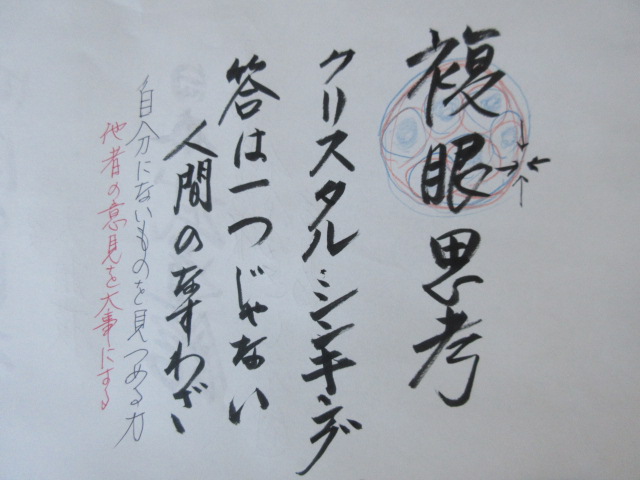 複眼思考
クリスタル・シンキング
答は一つじゃない
人間のなすわざ
自分にないものを見つめる力
他者の意見を大事にする